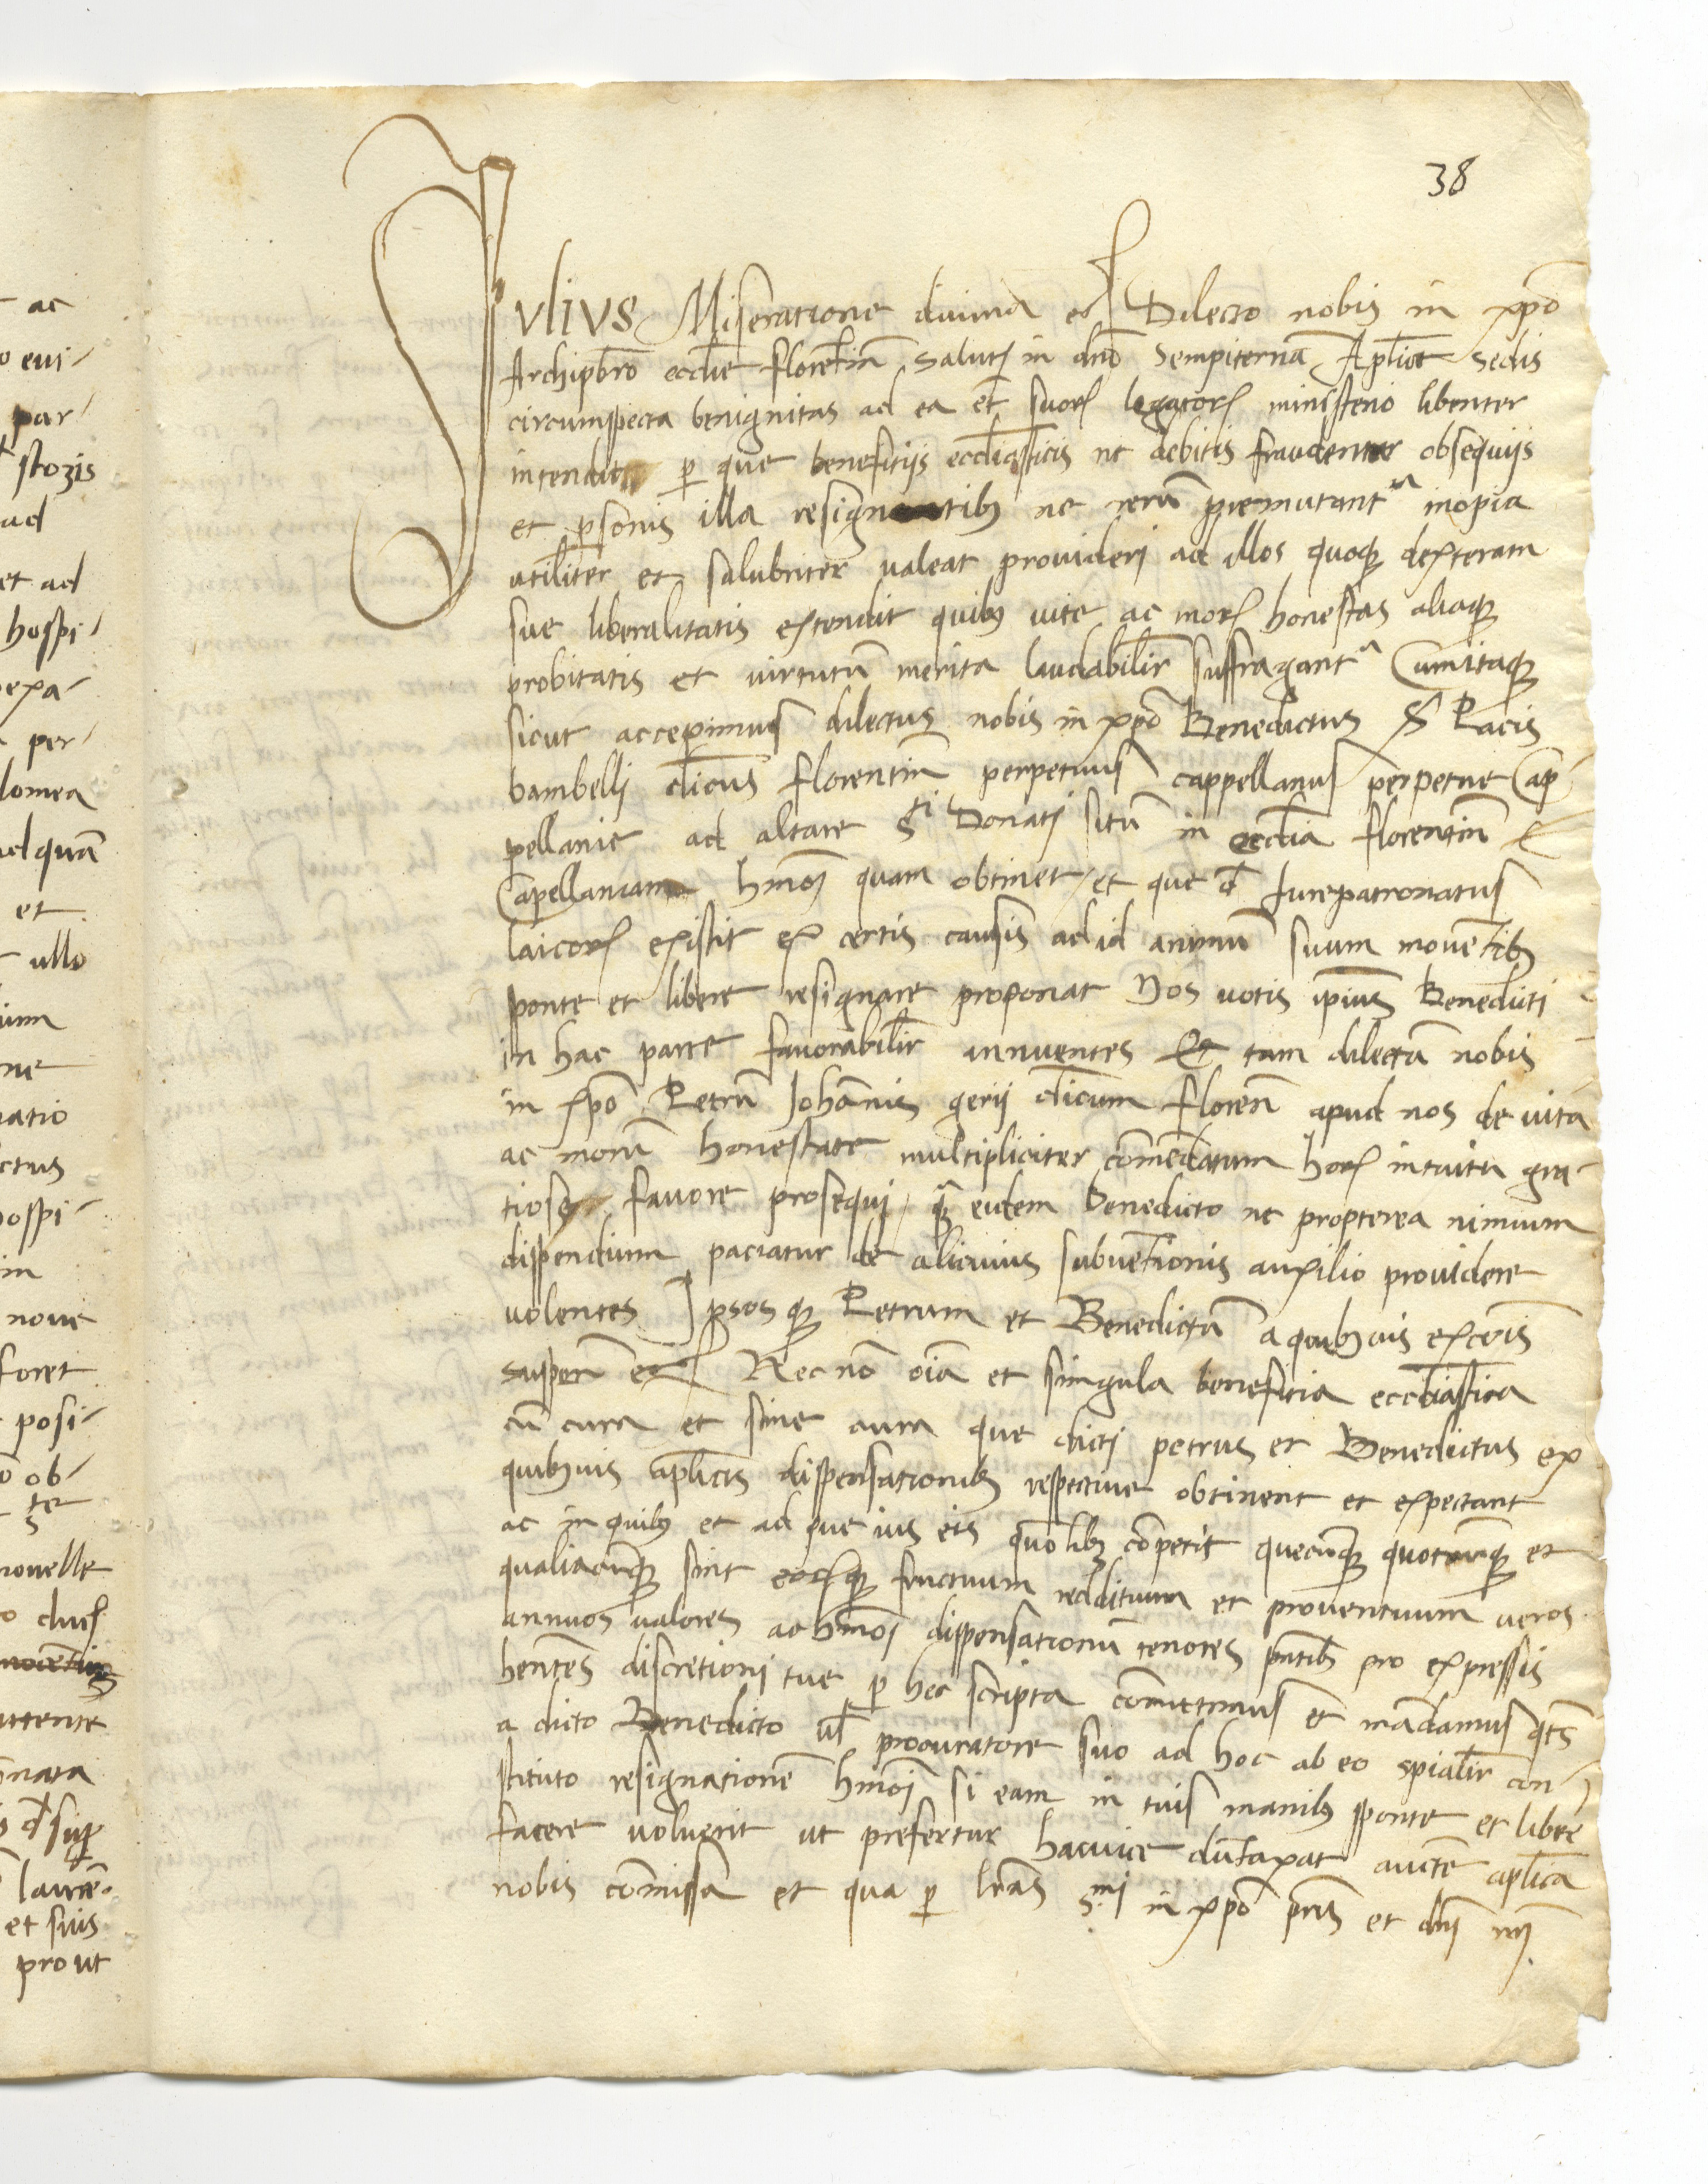 38
IVLIVS Miseratione diuina et Dilecto nobis in xpo
Archipbro ecclie florentin Salutem in dno Sempiternā Aplice sedis
circumspecta benignitas ad ea et suorꝝ legatorꝝ ministerio libenter
intendit ꝑ que beneficijs eccliasticis ne debitis fraudentur obsequijs
et ꝑsonis illa resignantibꝫ ne rerū premutantr inopia
utiliter et salubriter ualeat prouiderj ad illos quoqꝫ dexteram
sue liberalitatis extendit quibꝫ uite ac morꝝ honestas aliaqꝫ
probitatis et uirtutū merita laudabilir suffragantr Cumitaqꝫ
sicut accepimus dilectus nobis in xpo Benedictus S Pacis
bambellj clicus florentin perpetuus cappellanus perpetue Cap
pellanie ad altare Sti Donatj situ in ecclia florentin
Capellaniam hmoi quam obtinet / et que d Jurepatronatus
laicorꝝ existit ex certis causis ad id animū suum mouentibꝫ
sponte et libere resignare proponat Nos uotis ipius Benedicti
in hac parte fauorabilir annuentes Et tam dilectū nobis
in xpo Petrū Johānis gerij clicum floren apud nos de uita
ac morū honestate multipliciter cōmēdatum horꝝ intuitu gra-
tioso fauore prosequj / qꝫ eidem Benedicto ne propterea nimium
dispendium paciatur de alicuius subuētionis auxilio prouidere
uolentes Ipsos qꝫ Petrum et Benedictū a quibꝫuis excōis
suspen et Necnō oia et singula beneficia eccliastica
cū cura et sine cura que dictj petrus et Benedictus ex
quibꝫuis aplicis dispensationibꝫ respectiue obtinent et expectant
ac in quibꝫ et ad que ius eis quōlibꝫ cōpetit quecūqꝫ quotcūqꝫ et
qualiacūqꝫ sint eorꝝqꝫ fructuum reddituum et prouentuum ueros
annuos ualores ac hmoi dispensationū tenores pntibꝫ pro expressis
hentes discretioni tue ꝑ hec scripta cōmittimus et mādamus qts
a dicto Benedicto ul procuratore suo ad hoc ab eo spialir con
stituto resignationē hmoi si eam in tuis manibꝫ sponte et libere
facere uoluerit ut prefertur hacuice dūtaxat aucte aplica
nobis cōmissa et qua ꝑ lras S.mi in xpo pris et dni nrj